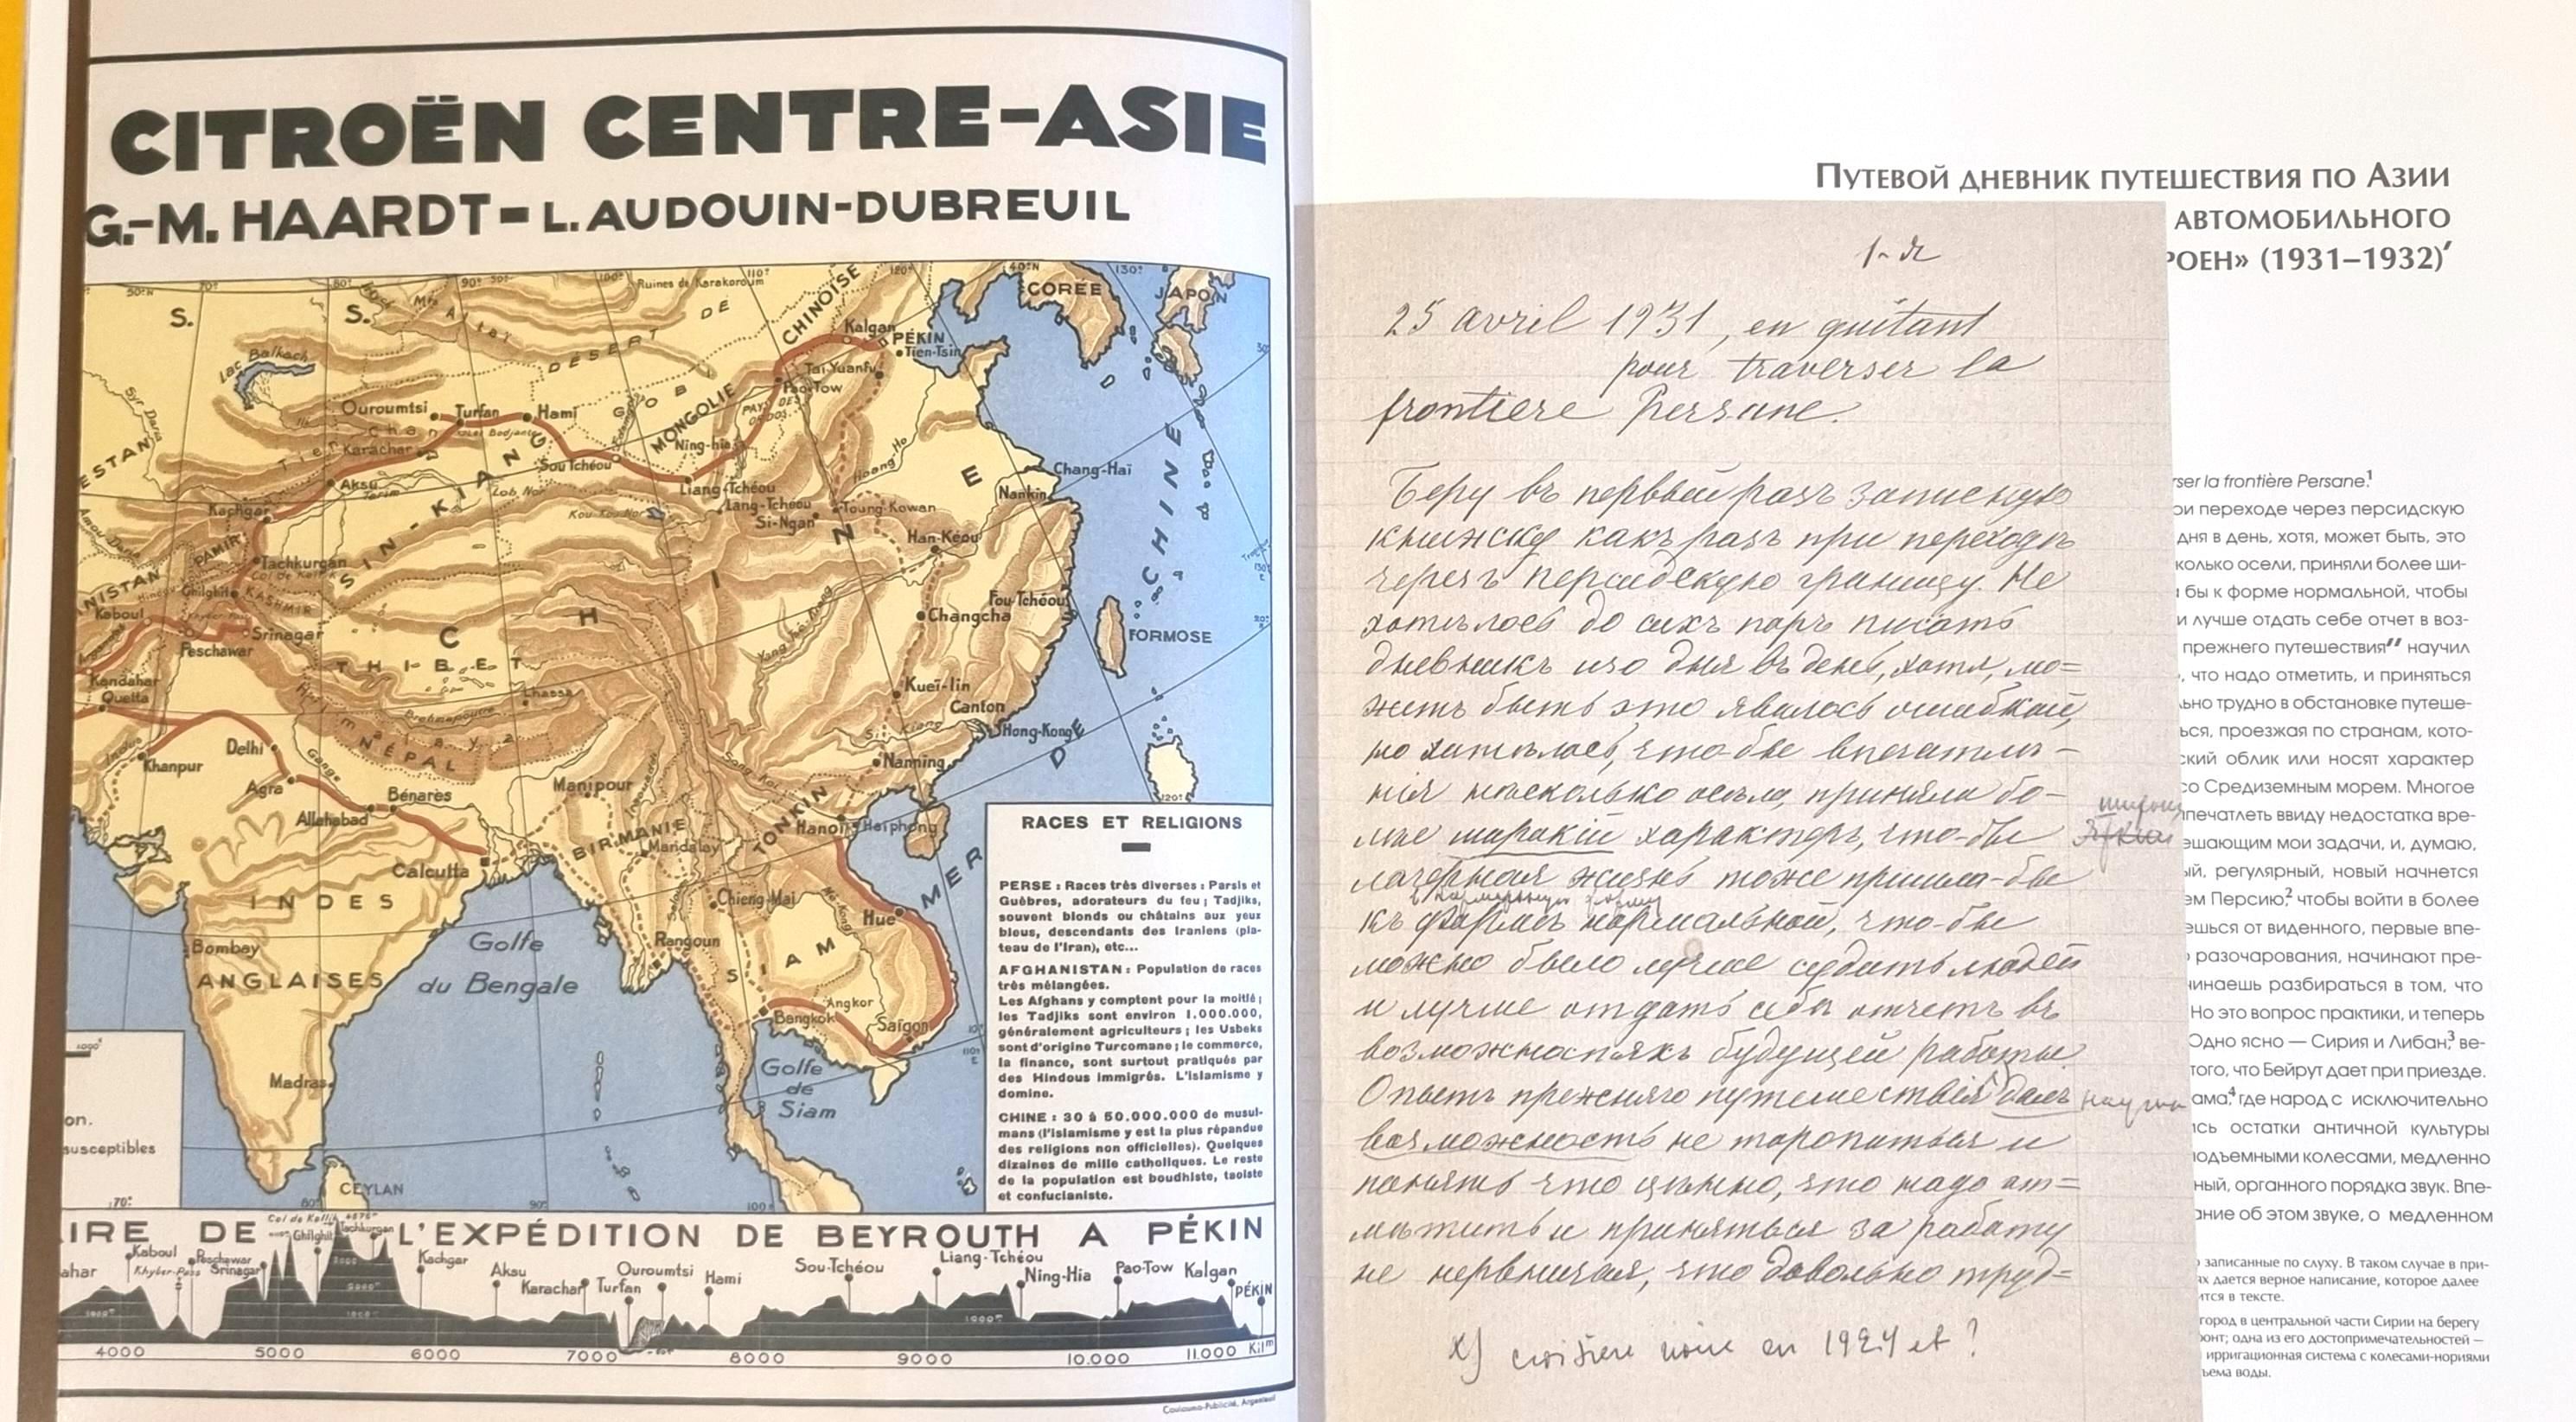 CITROËN CENTRE-ASIE
G.-M. HAARDT - L. AUDOUIN-DUBREUIL
S. S.
Lac Balkach
Mts Altaï
Ruines de Karakoroum
DÉSERT DE
GOBI
MONGOLIE
CHINOISE
CORÉE
JAPON
Kalgan
PÉKIN
Tien-Tsin
Tai-Yuanfu
Pao-Tow
PAYS DES ORDOS
Ning-hia
Syr Daria
Ouroumtsi
Turfan
Hami
Tien Chan
Karachar
Sou Tchéou
Aksu
Tarim
Lob Nor
Kou-Kou Nor
Liang-Tchéou
Lang-Tchéou
Si-Ngan
Toung-Kowan
Hoang Ho
Chang-Haï
Nankin
Han-Kéou
Kachgar
PAMIR
SIN-KIANG
Tachkurgan
Ghilghit
KASHMIR
Kaboul
Srinagar
Peschawar
Kandahar
Quetta
CHINE
THIBET
Lhassa
Brahmapoutre
Himalaya
NÉPAL
Yang Tsé Kiang
Changcha
Fou-Tchéou
FORMOSE
Kueï-lin
Canton
Si Kiang
Hong-Kong
Nanning
MER DE CHINE
Indus
Khanpur
Delhi
Agra
Gange
Allahabad
Bénarès
Calcutta
Manipour
BIRMANIE
Mandalay
TONKIN
Hanoï
Haïphong
Chieng-Mai
Mé-Kong
Hue
Rangoun
SIAM
Angkor
Bangkok
Saïgon
Golfe de Siam
INDES ANGLAISES
Bombay
Madras
CEYLAN
Golfe du Bengale
on.
susceptibles
RACES ET RELIGIONS
PERSE : Races très diverses : Parsis et
Guèbres, adorateurs du feu ; Tadjiks,
souvent blonds ou châtains aux yeux
bleus, descendants des Iraniens (pla-
teau de l'Iran), etc...
AFGHANISTAN : Population de races
très mélangées.
Les Afghans y comptent pour la moitié ;
les Tadjiks sont environ 1.000.000,
généralement agriculteurs ; les Usbeks
sont d'origine Turcomane ; le commerce,
la finance, sont surtout pratiqués par
des Hindous immigrés. L'islamisme y
domine.
CHINE : 30 à 50.000.000 de musul-
mans (l'islamisme y est la plus répandue
des religions non officielles). Quelques
dizaines de mille catholiques. Le reste
de la population est boudhiste, taoiste
et confucianiste.
IRE DE L'EXPÉDITION DE BEYROUTH A PÉKIN
ahar
Kaboul
Khyber-Pass
Peschawar
Srinagar
Ghilghit
Tachkurgan
Kachgar
Aksu
Karachar
Turfan
Ouroumtsi
Hami
Sou-Tchéou
Liang-Tchéou
Ning-Hia
Pao-Tow
Kalgan
PÉKIN
4000 5000 6000 7000 8000 9000 10.000 11.000 Kilm
Coulouma-Publicité, Argenteuil
Путевой дневник путешествия по Азии
автомобильного
роен» (1931–1932)′
1-я
25 avril 1931, en quitant
pour traverser la
frontiere Persane.
Беру въ первый разъ записную
книжку какъ разъ при переходѣ
черезъ персидскую границу. Не
хотѣлось до сихъ поръ писать
дневникъ изо дня въ день, хотя, мо=
жетъ быть это явилось ошибкой,
но хотѣлось, что-бы впечатлѣ-
нія насколько осѣли, приняли бо-
лѣе широкій характеръ, что-бы
лагерная жизнь тоже пришла-бы
въ нормальную форму
къ формѣ нормальной, что-бы
можно было лучше судить людей
и лучше отдать себѣ отчетъ въ
возможностяхъ будущей работы.
Опытъ прежняго путешествія далъ научил
возможность не торопиться и
понять что цѣнно, что надо от=
мѣтить и приняться за работу
не нервничая, что довольно труд=
x) croisière noire en 1924 et ?
rser la frontière Persane.¹
ри переходе через персидскую
дня в день, хотя, может быть, это
колько осели, приняли более ши-
бы к форме нормальной, чтобы
и лучше отдать себе отчет в воз-
прежнего путешествия″ научил
, что надо отметить, и приняться
ьно трудно в обстановке путеше-
ься, проезжая по странам, кото-
ский облик или носят характер
со Средиземным морем. Многое
печатлеть ввиду недостатка вре-
ешающим мои задачи, и, думаю,
ый, регулярный, новый начнется
ем Персию,² чтобы войти в более
ешься от виденного, первые впе-
разочарования, начинают пре-
чинаешь разбираться в том, что
Но это вопрос практики, и теперь
Одно ясно — Сирия и Либан,³ ве-
того, что Бейрут дает при приезде.
ама,⁴ где народ с исключительно
сь остатки античной культуры
подъемными колесами, медленно
ный, органного порядка звук. Впе-
ание об этом звуке, о медленном
записанные по слуху. В таком случае в при-
ях дается верное написание, которое далее
ится в тексте.
город в центральной части Сирии на берегу
онт; одна из его достопримечательностей —
ирригационная система с колесами-нориями
ъема воды.